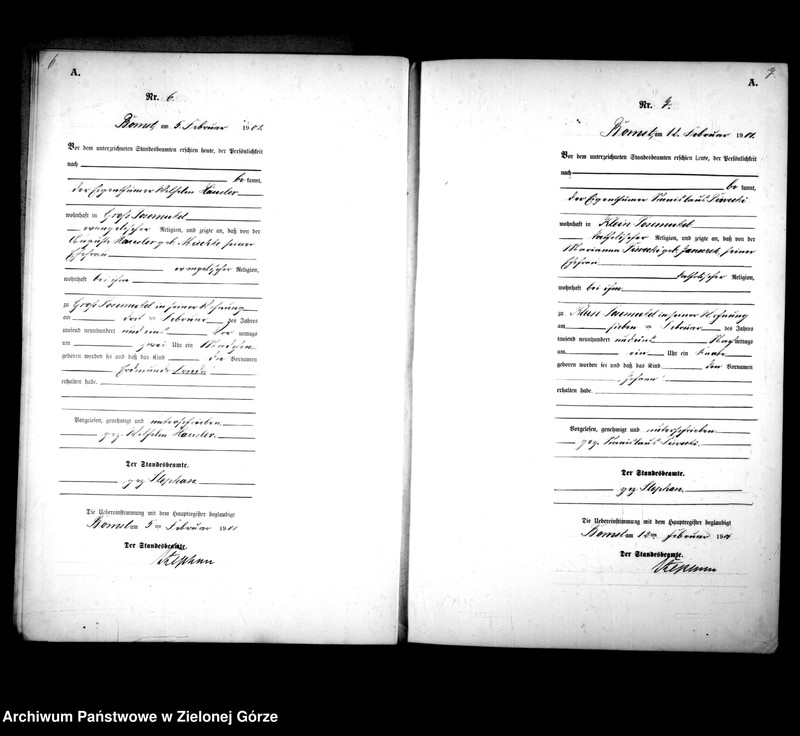 6.
A.
Nr. 6.
Bomst, am 5. Februar 1901.
Vor dem unterzeichneten Standesbeamten erschien heute, der Persönlichkeit
nach
be kannt,
der Eigenthümer Wilhelm
wohnhaft in Groß Posemukel
evangelischer Religion, und zeigte an, daß von der
Auguste geb. seiner
Ehefrau
evangelischer Religion,
wohnhaft bei ihm
zu Groß Posemukel in seiner Wohnung
am drei ten Februar des Jahres
tausend neunhundert und eins Vor mittags
um zwei Uhr ein Mädchen
geboren worden sei und daß das Kind die Vornamen
erhalten habe.
Vorgelesen, genehmigt und unterschrieben
gez. Wilhelm
Der Standesbeamte.
gez. Stephan
Die Uebereinstimmung mit dem Hauptregister beglaubigt
Bomst am 5 ten Februar 1901
Der Standesbeamte.
Stephan
7.
A.
Nr. 7.
Bomst, am 12. Februar 1901.
Vor dem unterzeichneten Standesbeamten erschien heute, der Persönlichkeit
nach
be kannt,
der Eigenthümer Stanislaus
wohnhaft in Klein Posemukel
katholischer Religion, und zeigte an, daß von der
Marianna geb. seiner
Ehefrau
katholischer Religion,
wohnhaft bei ihm
zu Klein Posemukel in seiner Wohnung
am sieben ten Februar des Jahres
tausend neunhundert und eins Nach mittags
um ein Uhr ein Knabe
geboren worden sei und daß das Kind den Vornamen
Johann
erhalten habe.
Vorgelesen, genehmigt und unterschrieben
gez. Stanislaus
Der Standesbeamte.
gez. Stephan
Die Uebereinstimmung mit dem Hauptregister beglaubigt
Bomst am 12 ten Februar 1901
Der Standesbeamte.
Stephan
Archiwum Państwowe w Zielonej Górze